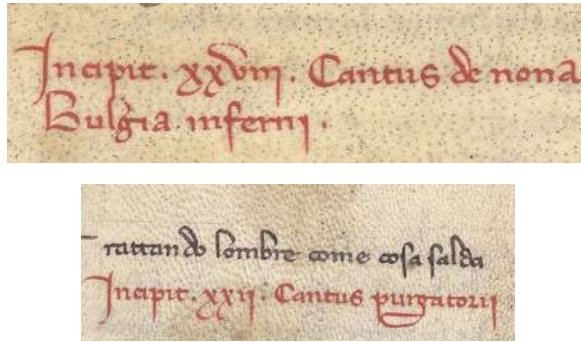 Incipit . xxviii . Cantus de nona
Bulgia inferni .
Trattando lombre come cosa salda
Incipit . xxii . Cantus purgatorii .